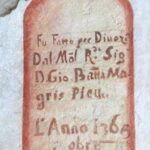 Fu Fatto per Divozi
Dal Mol Rdo Sig
D Gio Batta Ma
gris Piev.
L'Anno 1765
obre